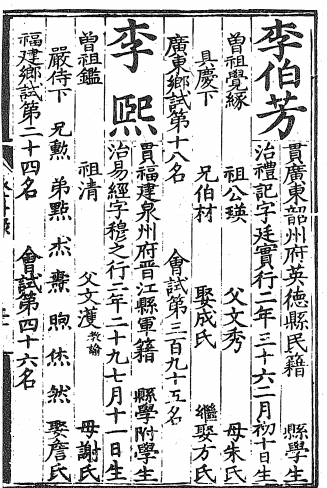 李伯芳
貫廣東韶州府英德縣民籍 縣學生
治禮記字廷實行二年三十六二月初十日生
曾祖覺緣 祖公瑛 父文秀 母朱氏
具慶下 兄伯材 娶成氏 繼娶方氏
廣東鄉試第十八名 會試第三百九十五名
李熙
貫福建泉州府晉江縣軍籍 縣學附學生
治易經字穆之行二年二十九七月十一日生
曾祖鑑 祖清 父文濩教諭 母謝氏
嚴侍下 兄勲 弟㸃 杰 燾 煦 烋 然 娶詹氏
福建鄉試第二十四名 會試第四十六名